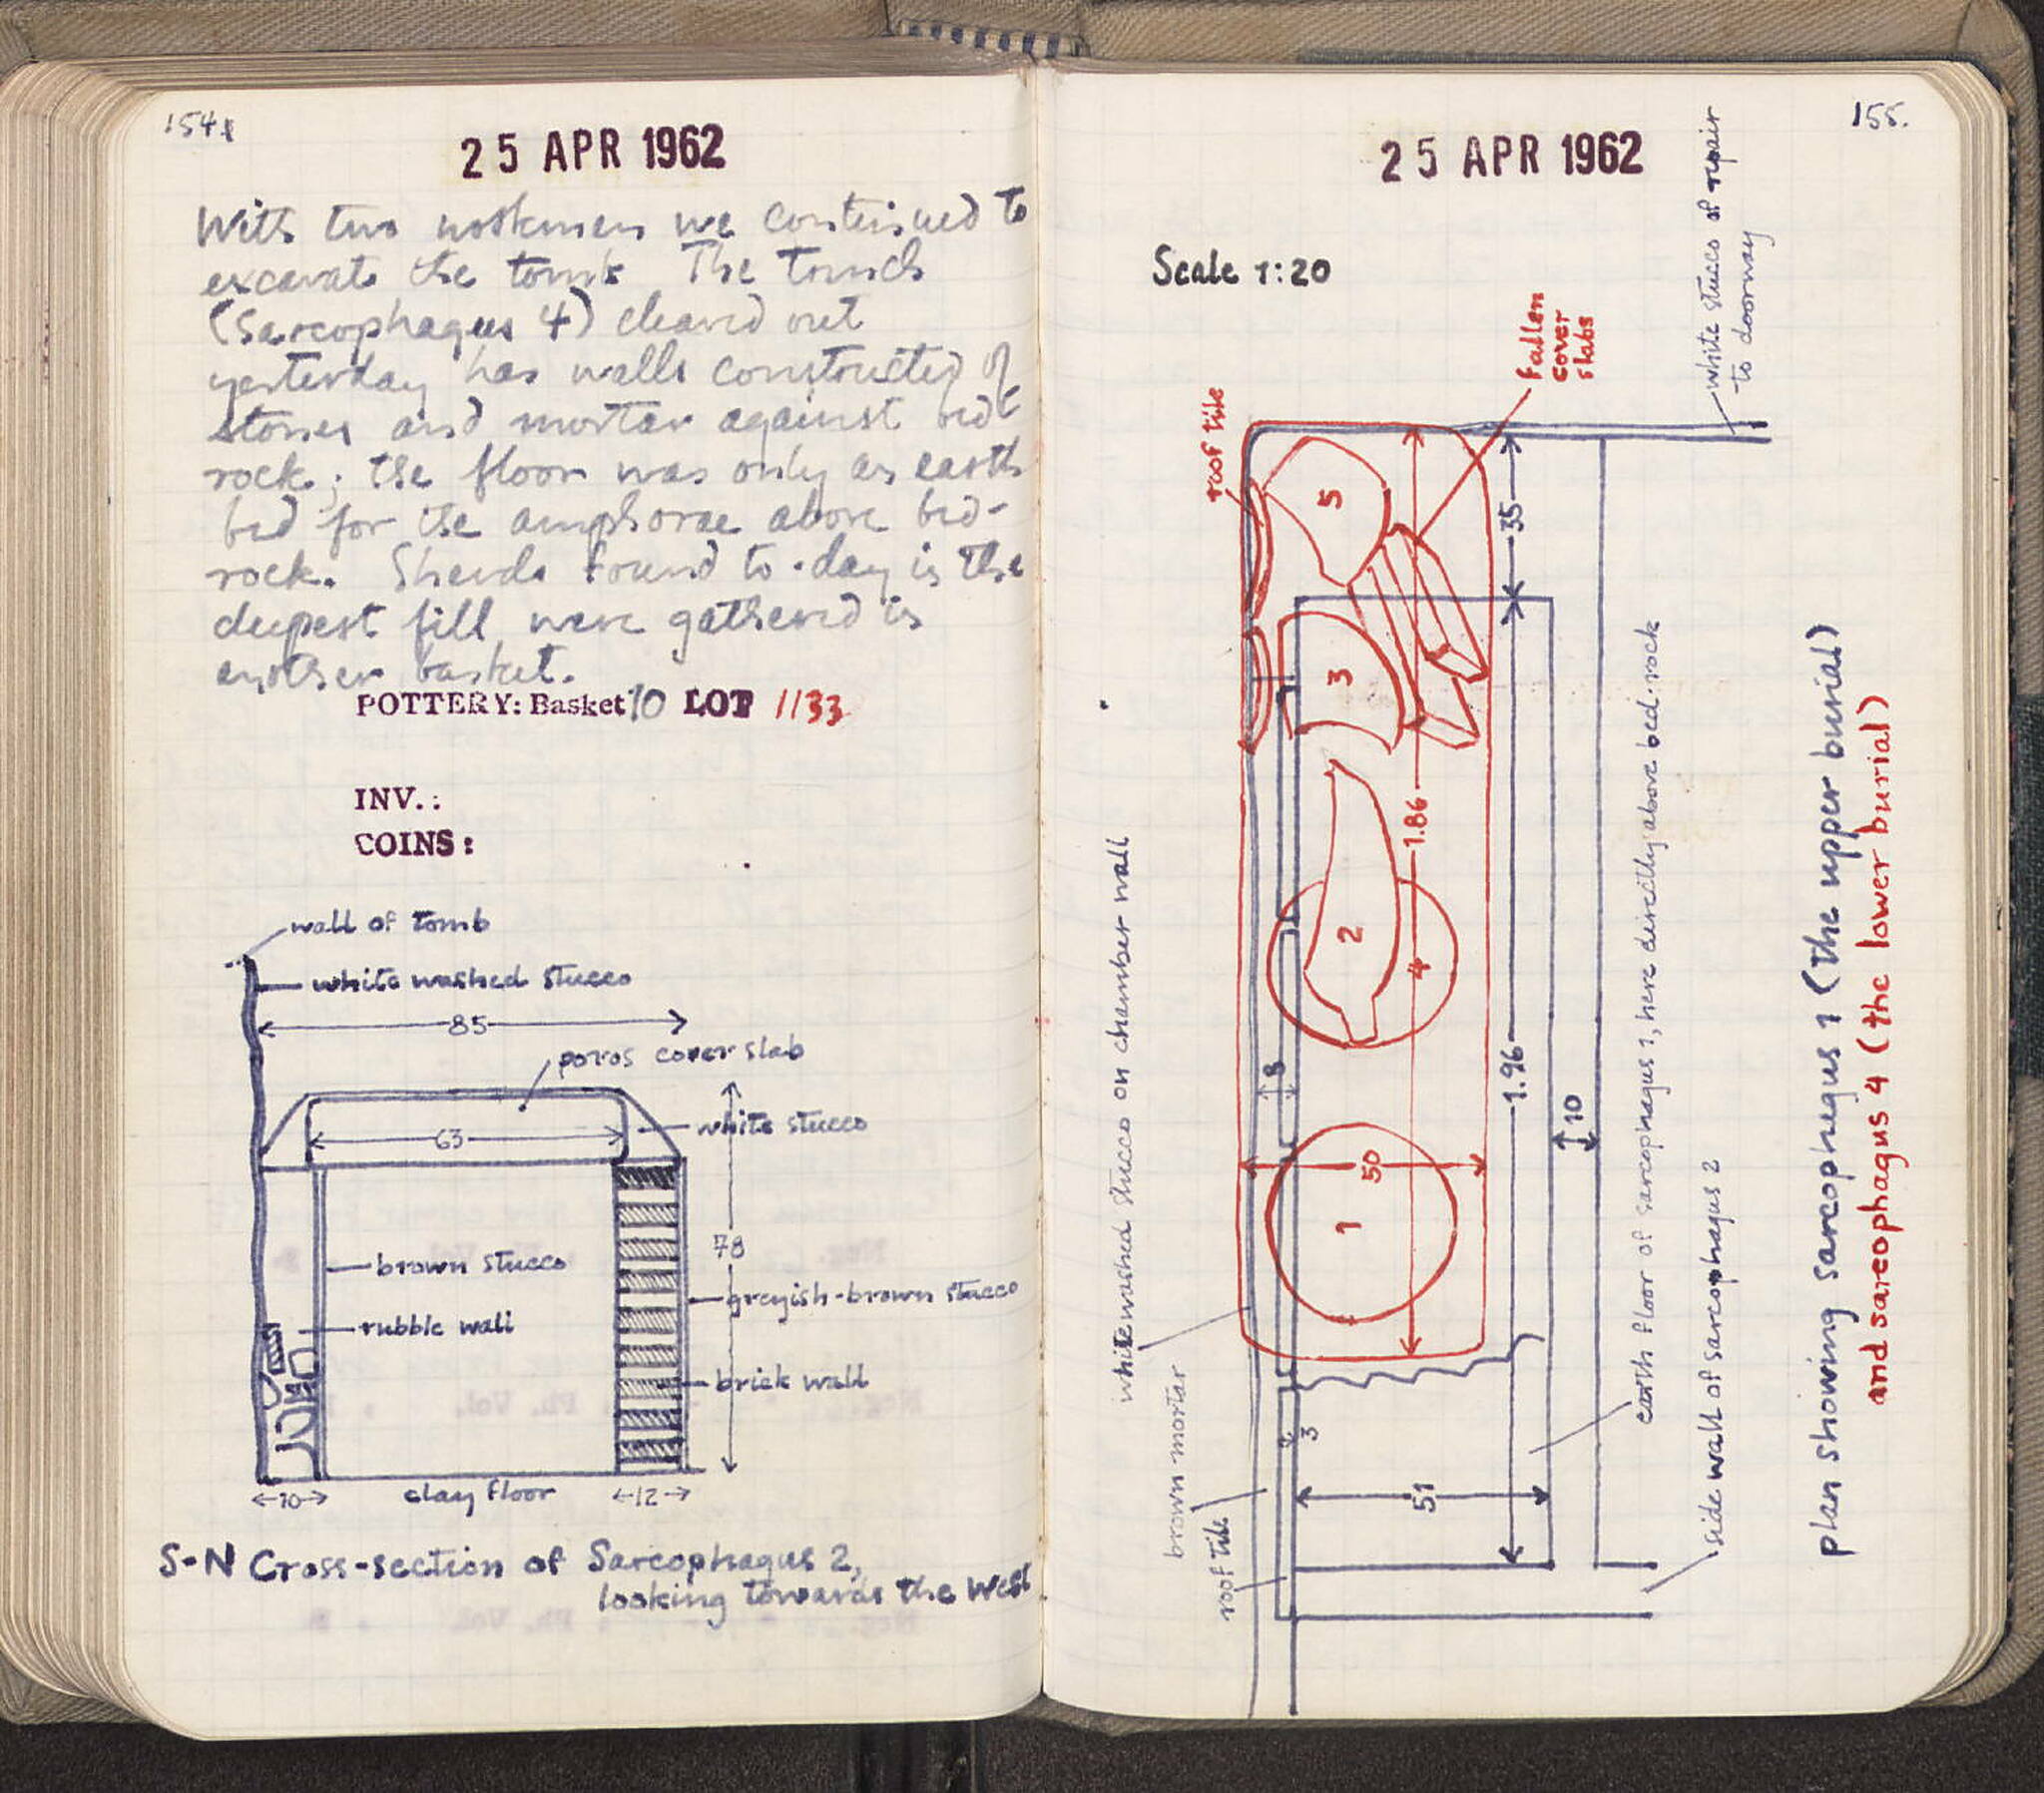 154
25 APR 1962
With two workmen we continued to
excavate the tomb. The trench
(Sarcophagus 4) cleared out
yesterday has walls constructed of
stones and mortar against bed
rock; the floor was only an earth
bed for the amphorae above bed-
rock. Sherds found to-day in the
deepest fill were gathered in
another basket.
POTTERY: Basket 10 LOT 1133
INV.:
COINS:
wall of tomb
white washed stucco
85
poros cover slab
63
white stucco
78
brown stucco
greyish-brown stucco
rubble wall
brick wall
10
clay floor
12
S-N Cross-section of Sarcophagus 2,
looking towards the West
155.
25 APR 1962
Scale 1:20
white stucco of repair
to doorway
fallen
cover
slabs
roof tile
5
35
3
1.86
2
4
1.96
8
10
50
1
3
51
whitewashed stucco on chamber wall
brown mortar
roof tile
earth floor of sarcophagus 1, here directly above bed-rock
side wall of sarcophagus 2
plan showing sarcophagus 1 (the upper burial)
and sarcophagus 4 (the lower burial)